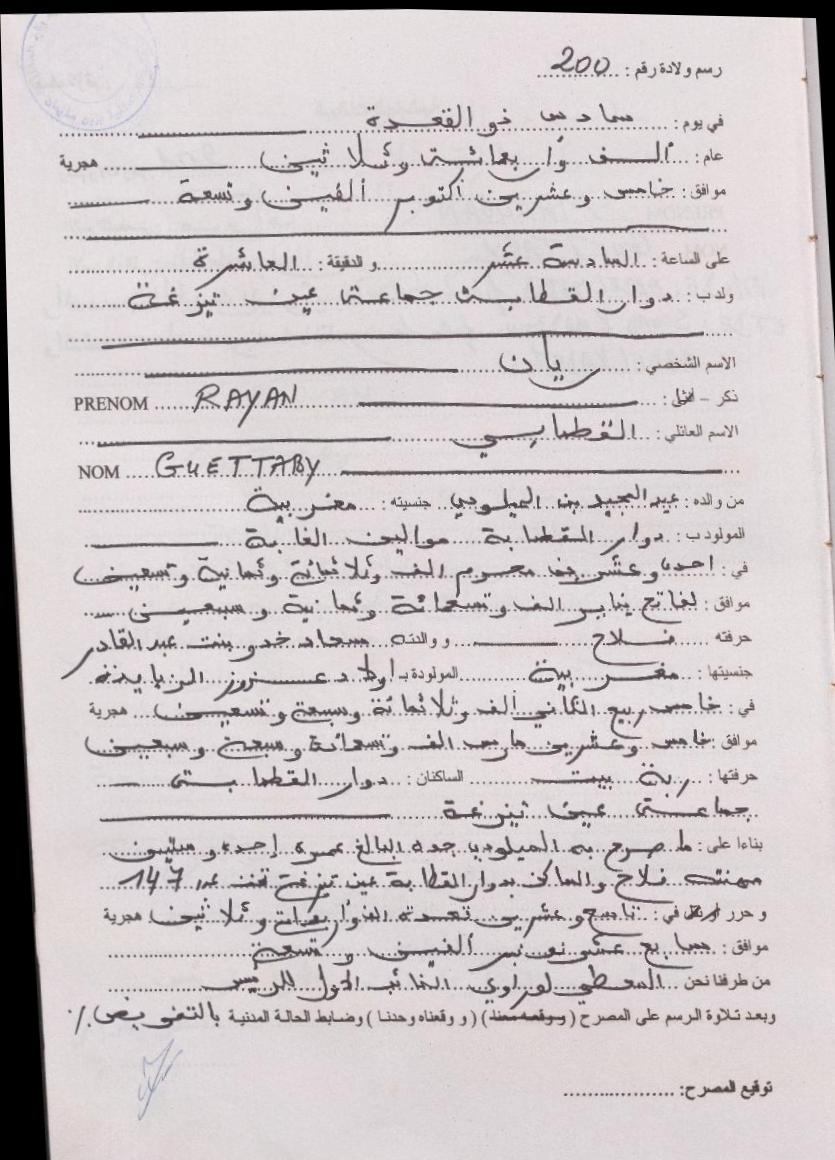 رسم ولادة رقم : 200
في يوم : سادس ذو القعدة
عام : ألف وأربعمائة وثلاثين هجرية
موافق : خامس وعشرين أكتوبر ألفين وتسعة
على الساعة : السادسة عشر و الدقيقة : العاشرة
ولد ب : دوار القطابة جماعة عين تيزغة
الاسم الشخصي : ريان
ذكر - أنثى : PRENOM RAYAN
الاسم العائلي : القطابي
NOM GUETTABY
من والده : عبد المجيد بن الميلودي جنسيته : مغربية
المولود ب : دوار القطابة مواليد الغابة
في : احدى وعشرين محرم الف وثلاثمائة وثمانية وتسعين
موافق : لفاتح يناير الف وتسعمائة وثمانية وسبعين
حرفته فلاح و والدته سعاد خدو بنت عبد القادر
جنسيتها : مغربية المولودة بـ اولاد عزوز الزيايدة
في : خامس ربيع الثاني ألف وثلاثمائة وسبعة وتسعين هجرية
موافق : خامس وعشرين مارس الف وتسعمائة وسبعة وسبعين
حرفتها : ربة بيت الساكنان : دوار القطابة
جماعة عين تيزغة
بناءا على : ما صرح به الميلودي جده البالغ عمره إحدى و ستين
مهنته فلاح والساكن بدوار القطابة عين تيزغة تحت عدد 147
و حرر في : تاسع وعشرين قعدة الف وأربعمائة وثلاثين هجرية
موافق : سابع عشر نونبر ألفين و تسعة
من طرفنا نحن المعطي لوراوي النائب الأول للرئيس
وبعد تلاوة الرسم على المصرح ( ووقعه معنا ) ( و وقعناه وحدنا ) وضابط الحالة المدنية بالتفويض ./.
توقيع المصرح :